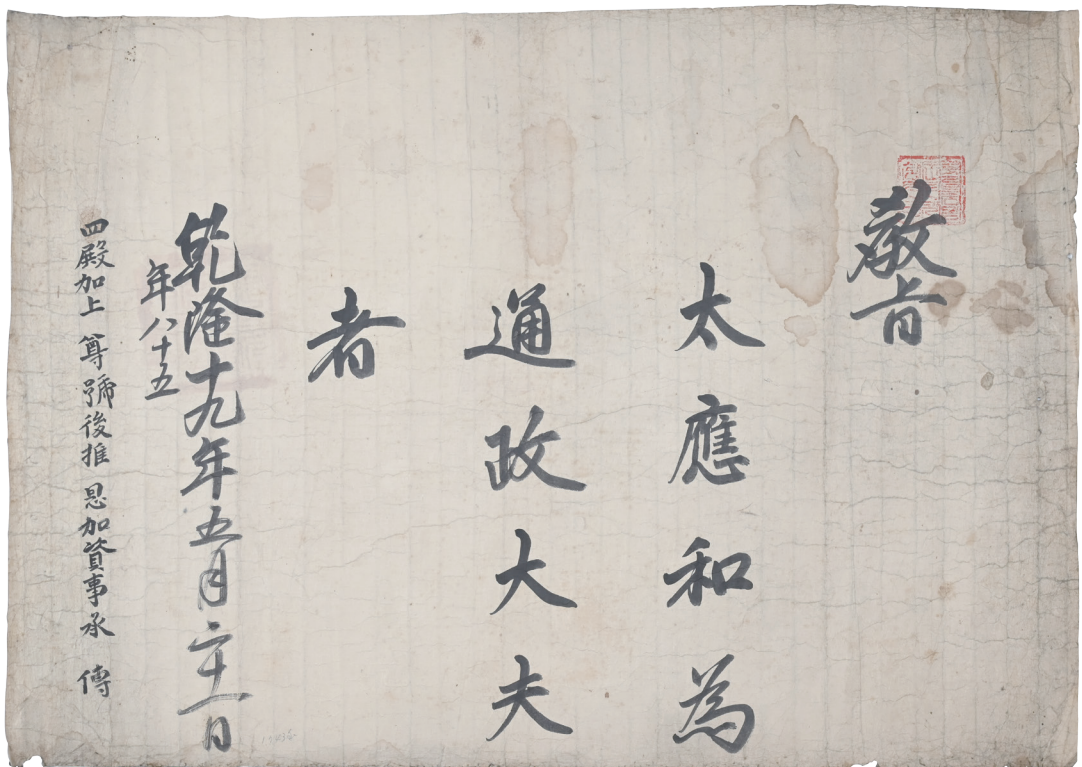 敎旨
太應和為
通政大夫
者
乾隆十九年五月二十一日
年八十五
四殿加上 尊號後推 恩加資事承 傳